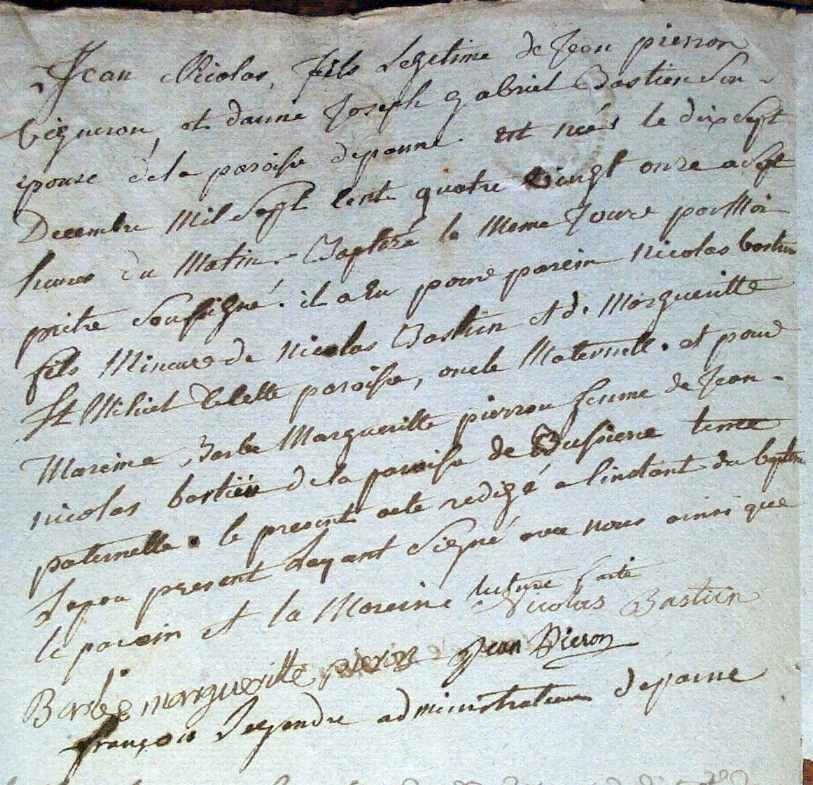 Jean Nicolas, fils Legitime de Jean pierron
vigneron, et d'anne Joseph gabriel Bastien son
epouse de la paroisse depanne. est nées le dixsept
Decembre Mil Sept Cent quatre vingt onze a sept
heures du Matin. Baptisé le Meme Jour par Moi
pretre Soussigné. il a Eu pour parein Nicolas bastien
fils Mineur de Nicolas Bastien et de Margueritte
St Mihiel de cette paroisse, oncle Maternelle. et pour
Mareine Barbe Margueritte pierron femme de Jean
nicolas bastien de la paroisse de tente
paternelle. le present acte redigé a l'instant du baptême
Le pere present Layant Signé avec nous ainsi que
le parein et la Mareine lecture faite
Nicolas Bastien
Barbe margueritte pieron Jean Pieron
françois Legendre administrateur depanne